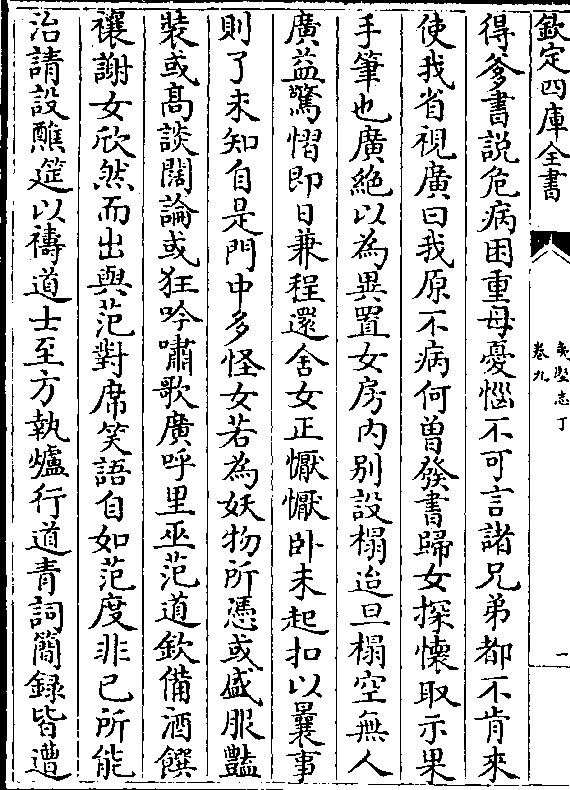 欽定四庫全書
夷堅志丁
卷九
一
得爹書説危病困重母憂惱不可言諸兄弟都不肯來
使我省視廣曰我原不病何曽發書歸女探懐取示果
手筆也廣絶以為異置女房内别設榻迨旦榻空無人
廣益驚慴即日兼程還舍女正懨懨卧未起扣以曩事
則了未知自是門中多怪女若為妖物所憑或盛服豔
裝或髙談闊論或狂吟嘯歌廣呼里巫范道欽備酒饌
禳謝女欣然而出與范對席笑語自如范度非已所能
治請設醮筵以禱道士至方執爐行道青詞簡錄皆遭